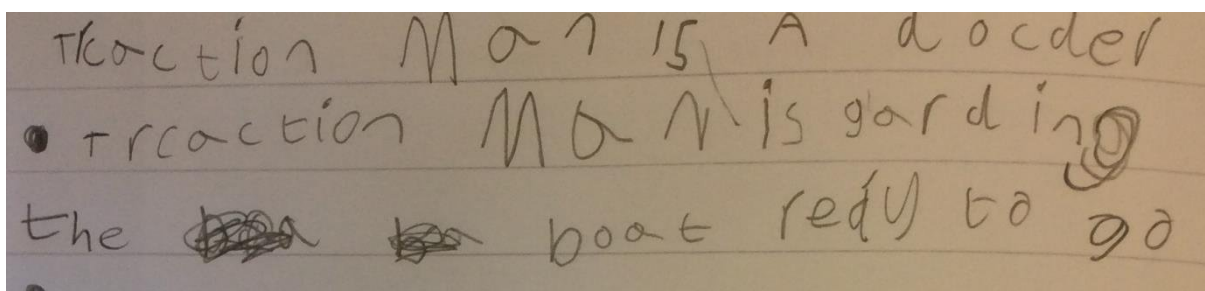 Traction Man is A docder
• Trcaction Man is garding
the boat redy to go